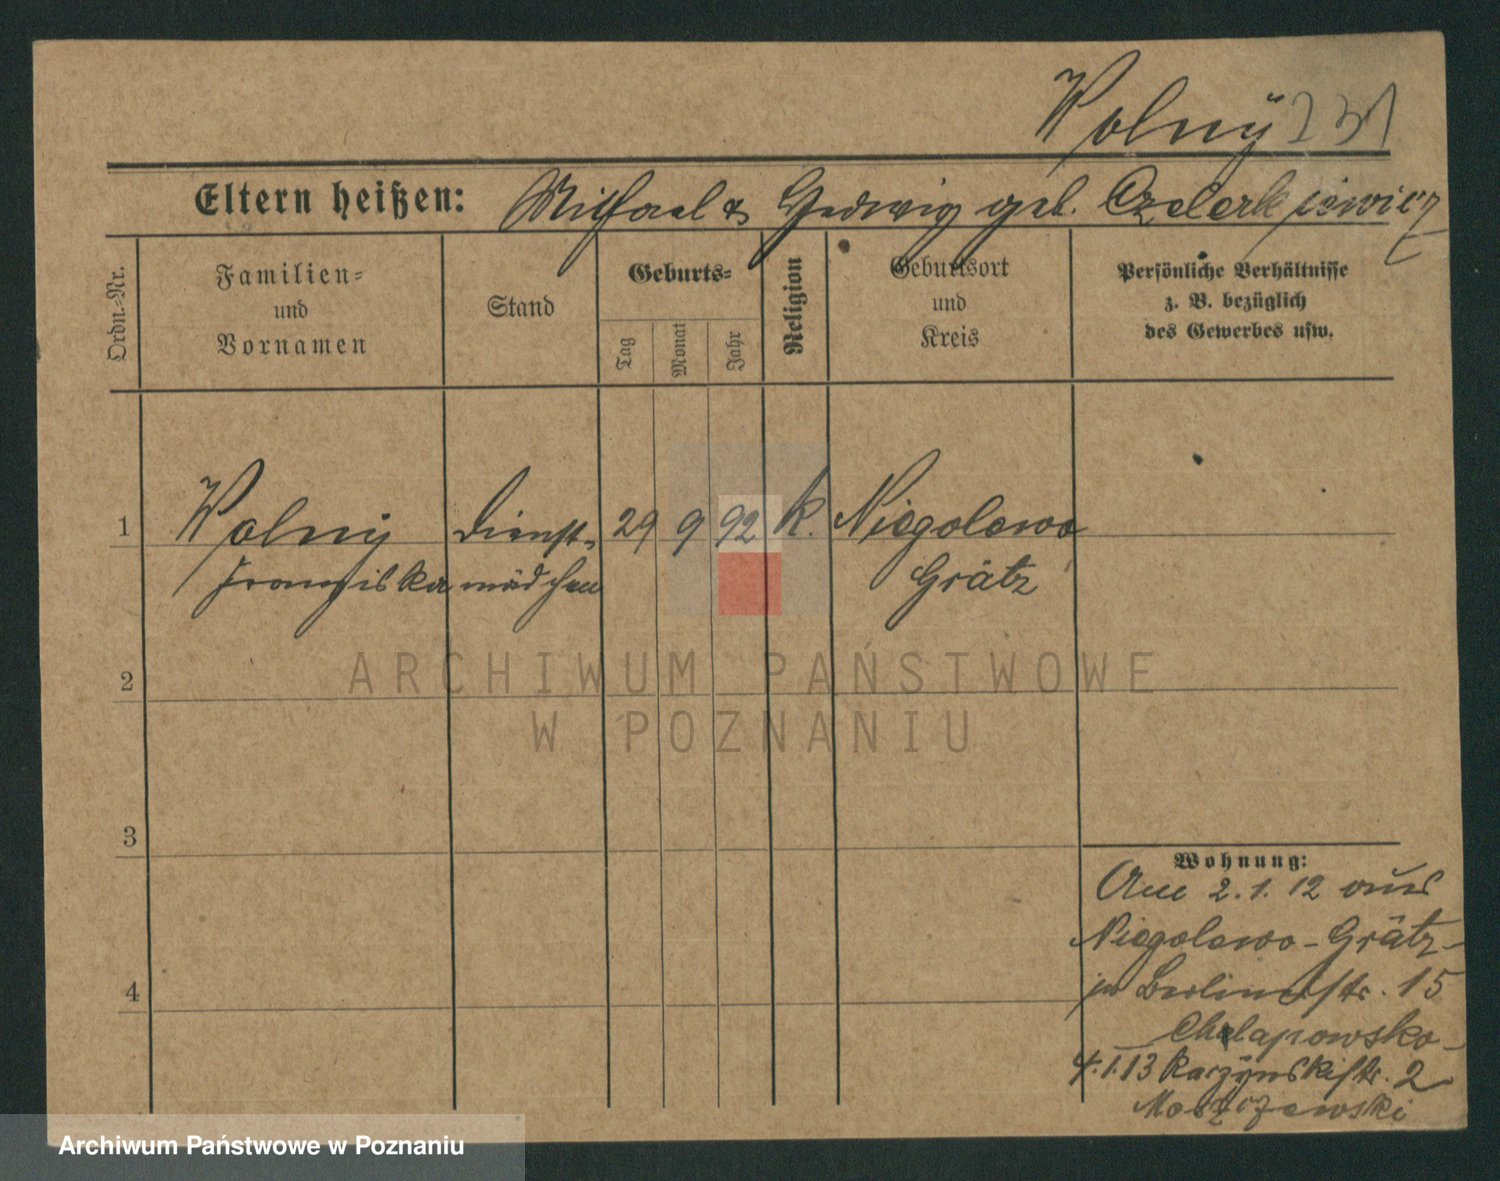 Wolny 231
Eltern heißen: Michael & Hedwig geb. Czelerkiewicz
Ordn.-Nr.
Familien-
und
Vornamen
Stand
Geburts-
Tag
Monat
Jahr
Religion
Geburtsort
und
Kreis
Persönliche Verhältnisse
z. B. bezüglich
des Gewerbes usw.
1 Wolny Dienst- 29 9 92 k. Niegolewo
Franziska mädchen Grätz
2
ARCHIWUM PAŃSTWOWE
W POZNANIU
3
4
Wohnung:
Am 2.1.12 aus
Niegolewo-Grätz-
in Berlinerstr. 15
Chelapowska-
4.1.13 Raczynskistr. 2
Moszczewski
Archiwum Państwowe w Poznaniu